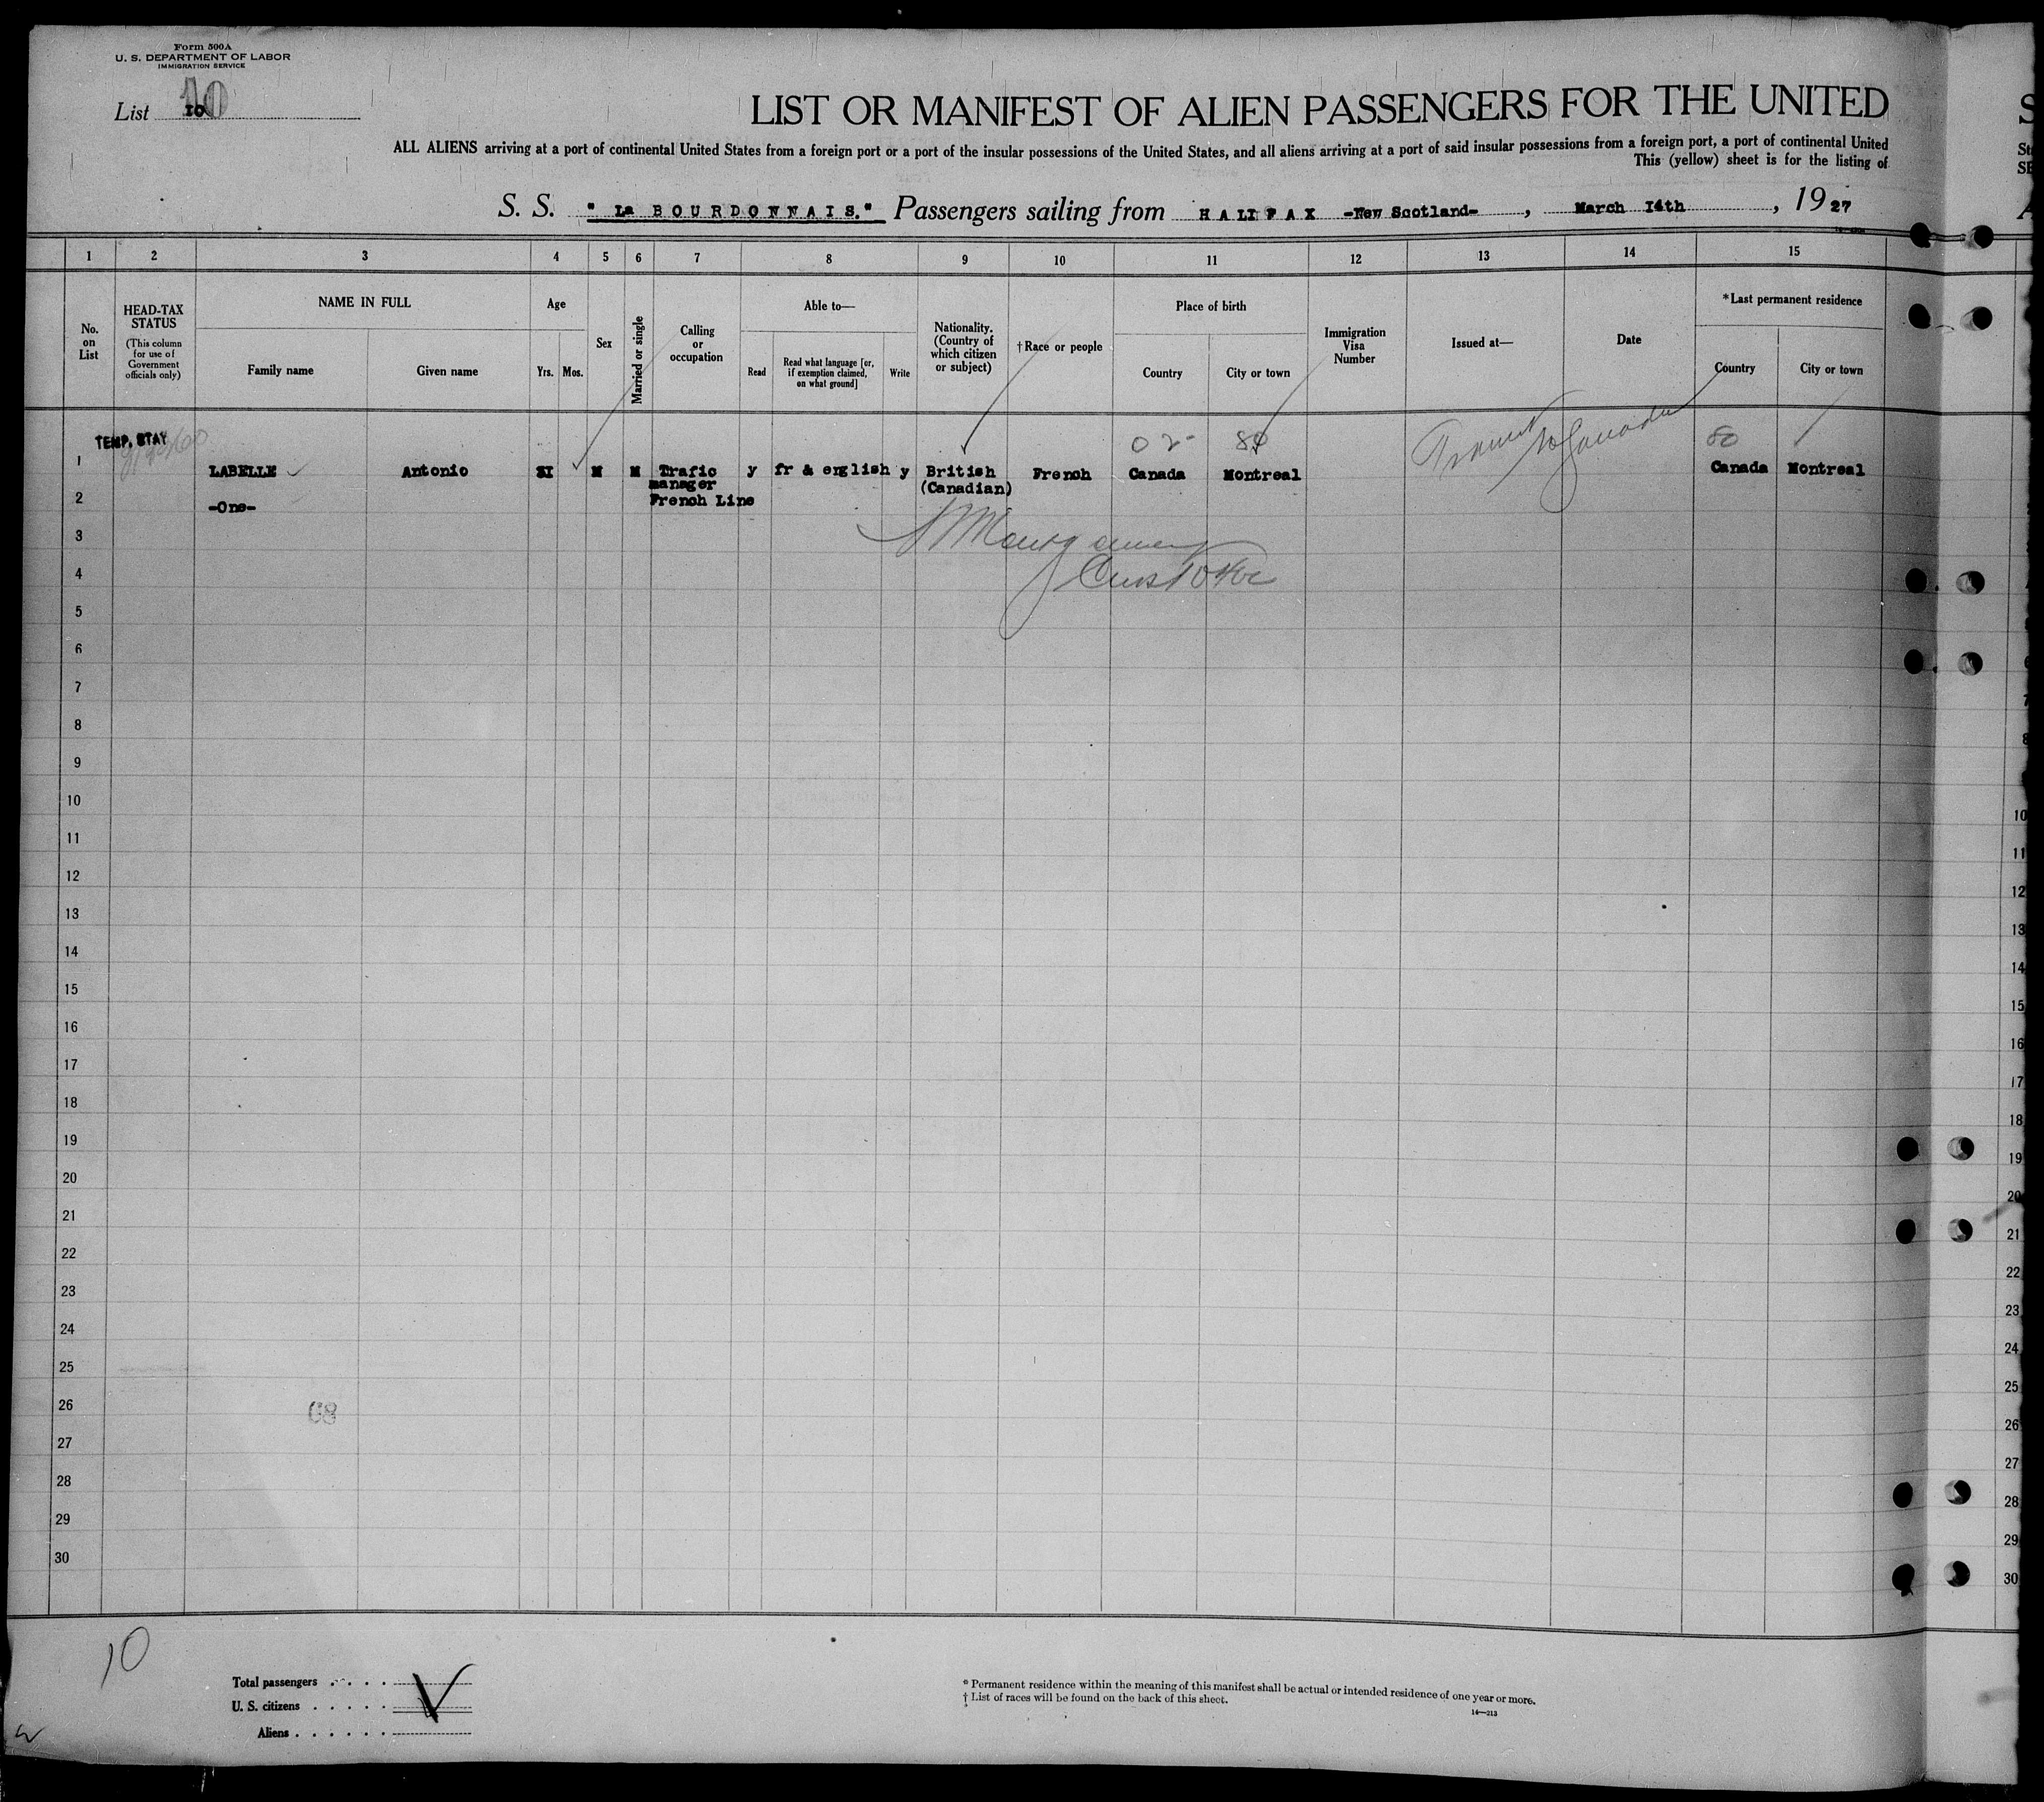 Form 500A
U. S. DEPARTMENT OF LABOR
IMMIGRATION SERVICE
List 10
LIST OR MANIFEST OF ALIEN PASSENGERS FOR THE UNITED
ALL ALIENS arriving at a port of continental United States from a foreign port or a port of the insular possessions of the United States, and all aliens arriving at a port of said insular possessions from a foreign port, a port of continental United
This (yellow) sheet is for the listing of
S. S. " La BOURDONNAIS." Passengers sailing from HALIFAX -New Scotland- , March I4th , 1927
1 2 3 4 5 6 7 8 9 10 11 12 13 14 15
No. on List
HEAD-TAX STATUS
(This column for use of Government officials only)
NAME IN FULL
Family name
Given name
Age
Yrs. Mos.
Sex
Married or single
Calling or occupation
Able to—
Read
Read what language [or, if exemption claimed, on what ground]
Write
Nationality. (Country of which citizen or subject)
†Race or people
Place of birth
Country
City or town
Immigration Visa Number
Issued at—
Date
*Last permanent residence
Country
City or town
TEMP. STAY
02 80 80
1 LABELLE Antonio M M Trafic y fr & english y British French Canada Montreal Canada Montreal
manager (Canadian)
2 -One- French Line
3
4
5
6
7
8
9
10
11
12
13
14
15
16
17
18
19
20
21
22
23
24
25
26
27
28
29
30
10
Total passengers . . . . .
U. S. citizens . . . . .
Aliens . . . . . .
* Permanent residence within the meaning of this manifest shall be actual or intended residence of one year or more.
† List of races will be found on the back of this sheet.
14—213